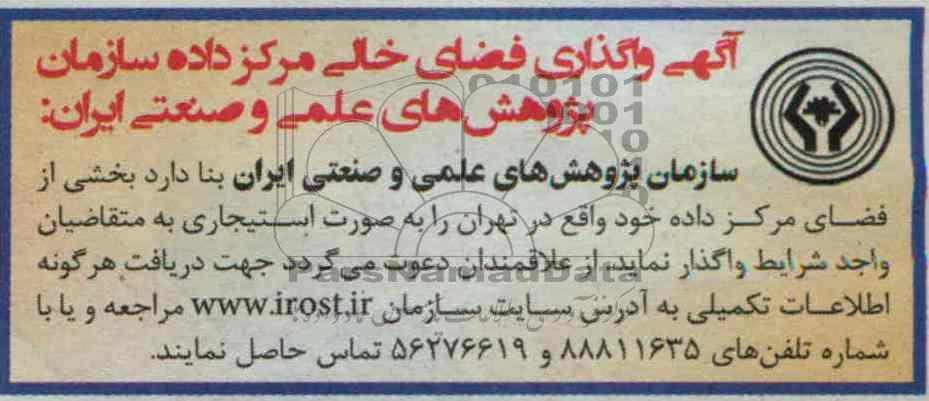 آگهی واگذاری فضای خالی مرکز داده سازمان
پژوهش‌های علمی و صنعتی ایران:
سازمان پژوهش‌های علمی و صنعتی ایران بنا دارد بخشی از
فضای مرکز داده خود واقع در تهران را به صورت استیجاری به متقاضیان
واجد شرایط واگذار نماید. از علاقمندان دعوت می‌گردد جهت دریافت هرگونه
اطلاعات تکمیلی به آدرس سایت سازمان www.irost.ir مراجعه و یا با
شماره تلفن‌های ۸۸۸۱۱۶۳۵ و ۵۶۲۷۶۶۱۹ تماس حاصل نمایند.
ParsNamadData